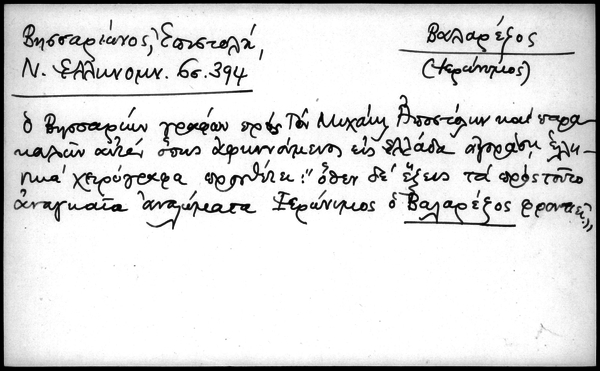 Βησσαρίωνος, Ἐπιστολή, Βαλαρέξος
Ν. Ἑλληνομν. 6ς. 394 (Ἱερώνιμος)
ὁ Βησσαρίων γράφων πρὸς τὸν Μιχαήλ Ἀποστόλην καὶ παρα-
καλῶν αὐτόν ὅπως ἀφικνούμενος εἰς Ἑλλάδα ἀγοράσῃ ἑλλη-
νικά χειρόγραφα προσθέτει: "ὅθεν δὲ ἕξεις τὰ πρὸς τοῦτο
ἀναγκαῖα ἀναλώματα Ἱερώνιμος ὁ Βαλαρέξος φροντιεῖ."